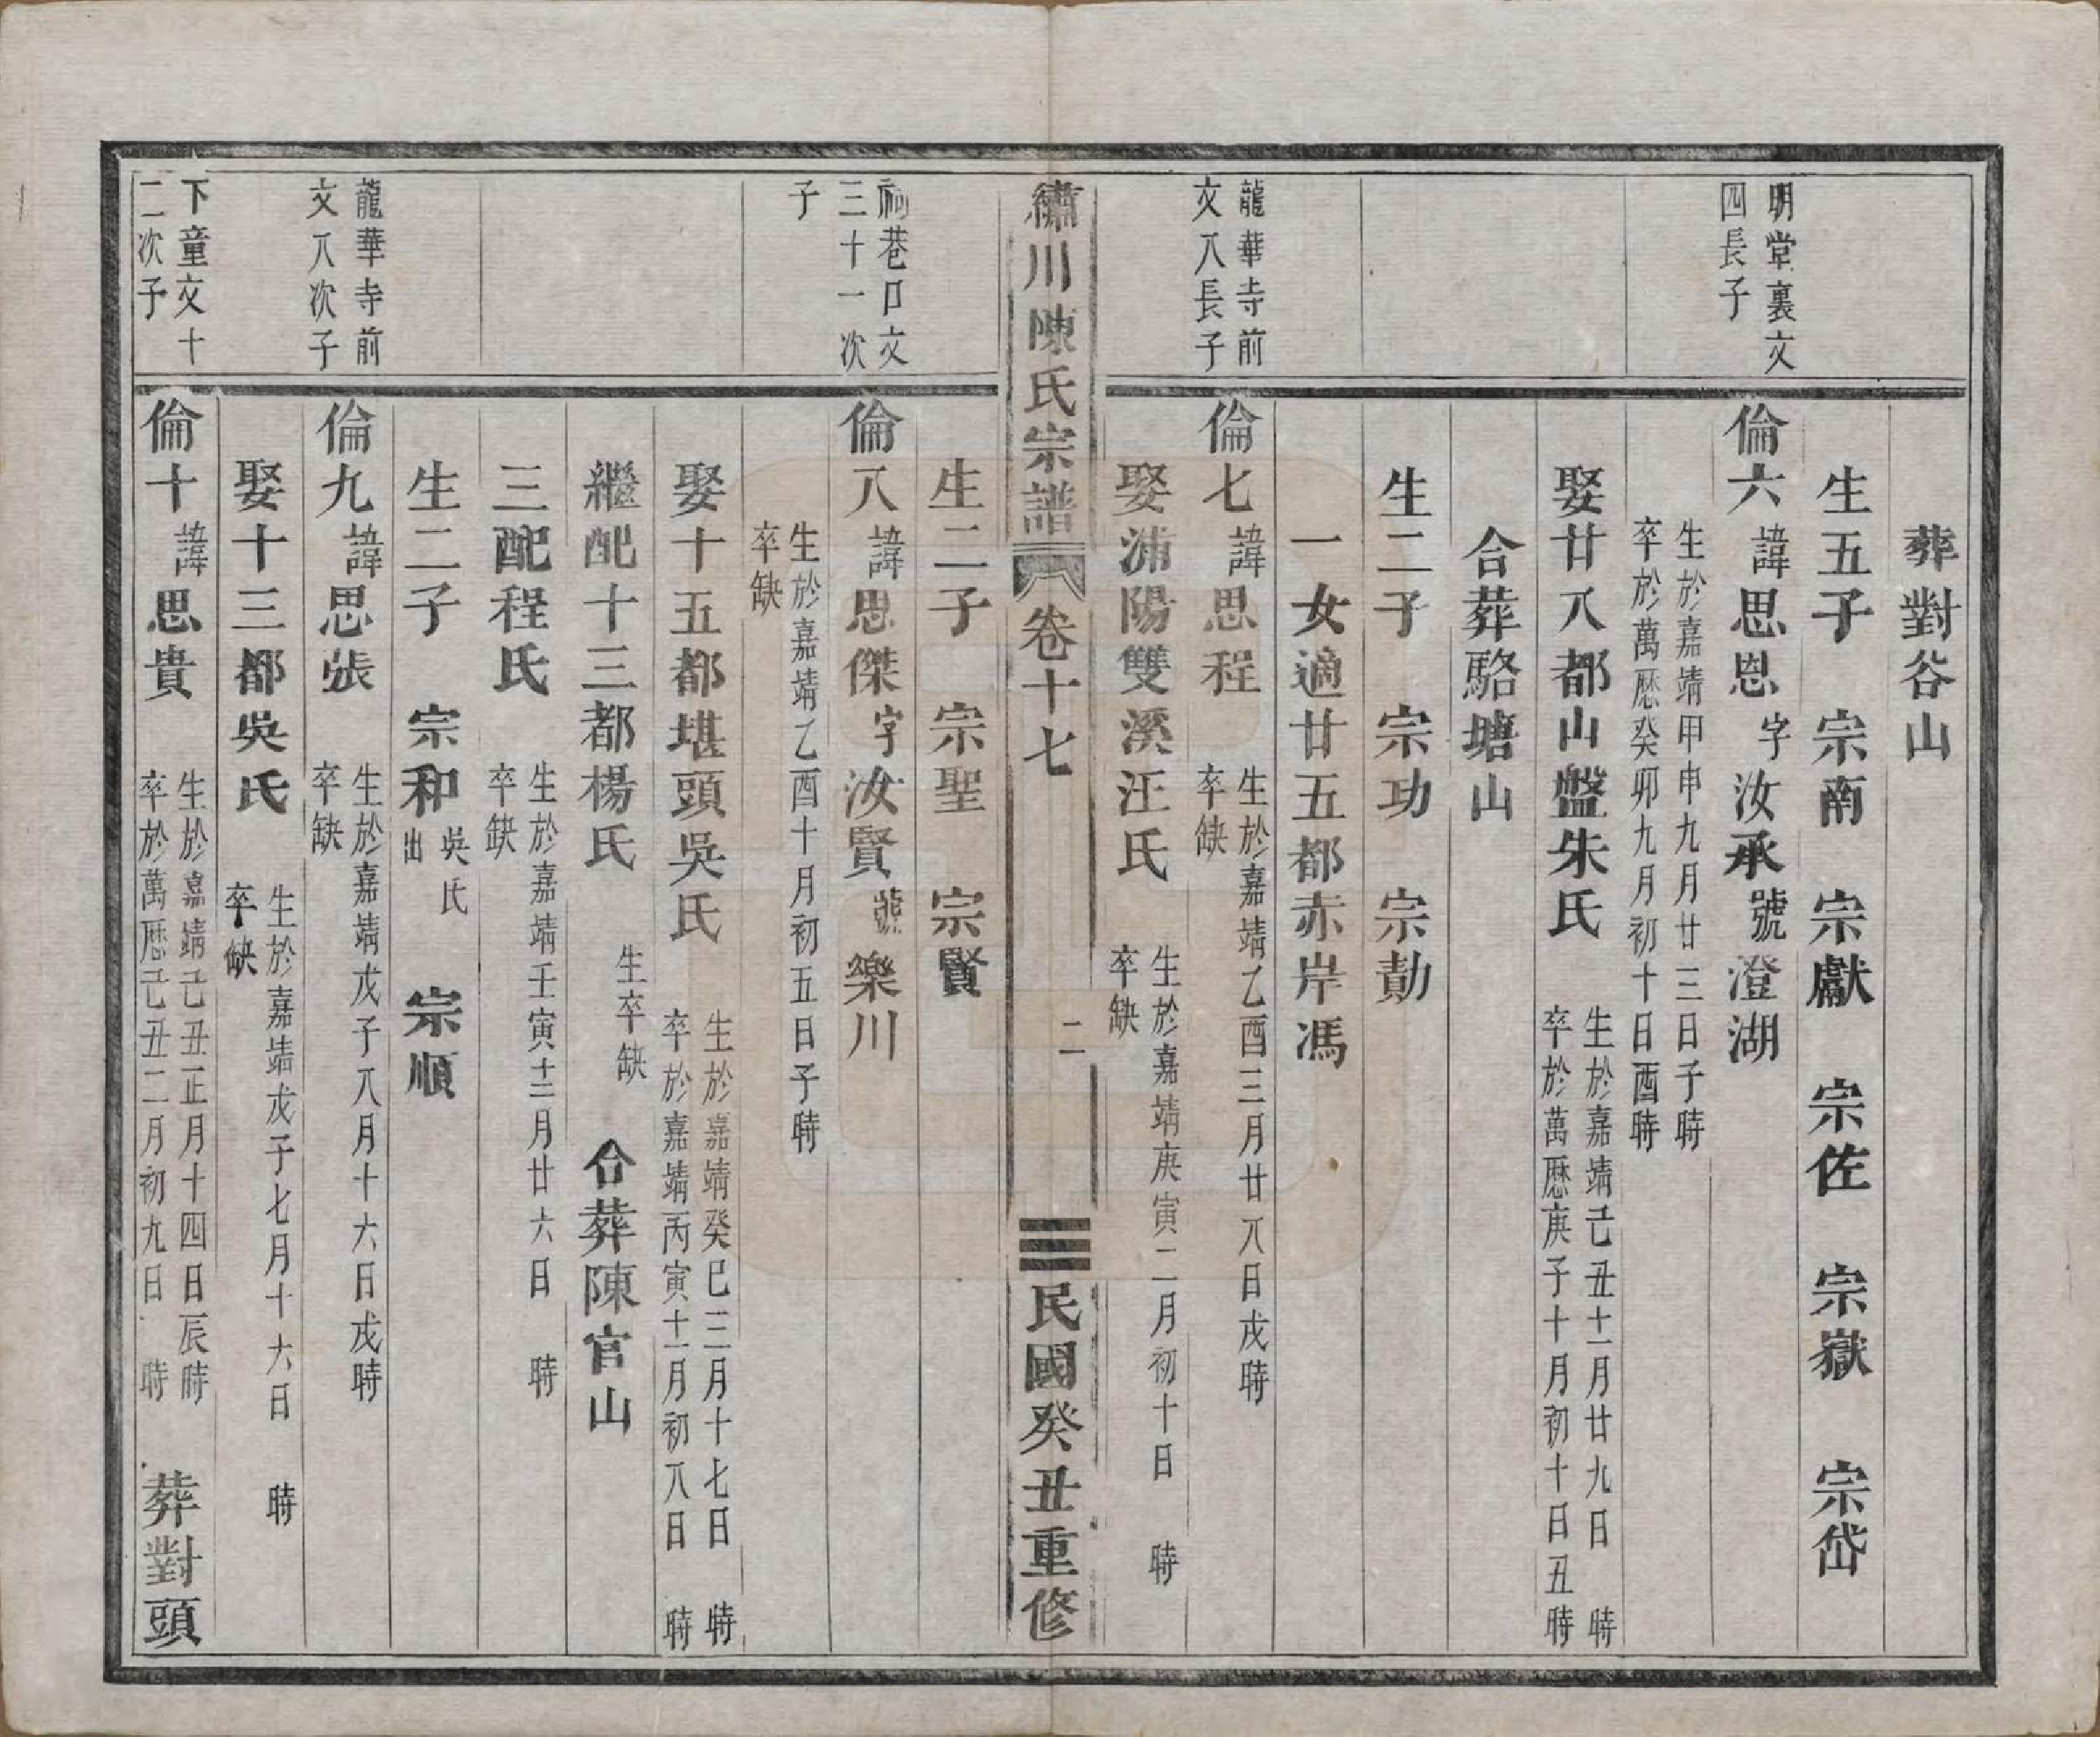 葬對谷山
生五子　宗南　宗獻　宗佐　宗嶽　宗岱
明堂裏文
四長子
倫六諱思恩字汝承號澄湖
生於嘉靖甲申九月廿三日子時
卒於萬歷癸卯九月初十日酉時
娶廿八都山盤朱氏
生於嘉靖己丑十一月廿九日　時
卒於萬歷庚子十月初十日丑時
合葬駱塘山
生二子　宗功　宗勣
一女適廿五都赤岸馮
龍華寺前
文八長子
倫七諱思程
生於嘉靖乙酉三月廿八日戌時
卒缺
娶浦陽雙溪汪氏
生於嘉靖庚寅二月初十日　時
卒缺
繡川陳氏宗譜　卷十七　二　民國癸丑重修
生二子　宗聖　宗賢
祠巷口文
三十一次
子
倫八諱思傑字汝賢號樂川
生於嘉靖乙酉十月初五日子時
卒缺
娶十五都堪頭吳氏
生於嘉靖癸巳三月十七日　時
卒於嘉靖丙寅十一月初八日　時
繼配十三都楊氏　生卒缺　合葬陳官山
三配程氏
生於嘉靖壬寅十二月廿六日　時
卒缺
生二子　宗和吳氏出　宗順
龍華寺前
文八次子
倫九諱思張
生於嘉靖戊子八月十六日戌時
卒缺
娶十三都吳氏
生於嘉靖戊子七月十六日　時
卒缺
下童文十
二次子
倫十諱思貴
生於嘉靖己丑正月十四日辰時
卒於萬歷己丑二月初九日　時
葬對頭